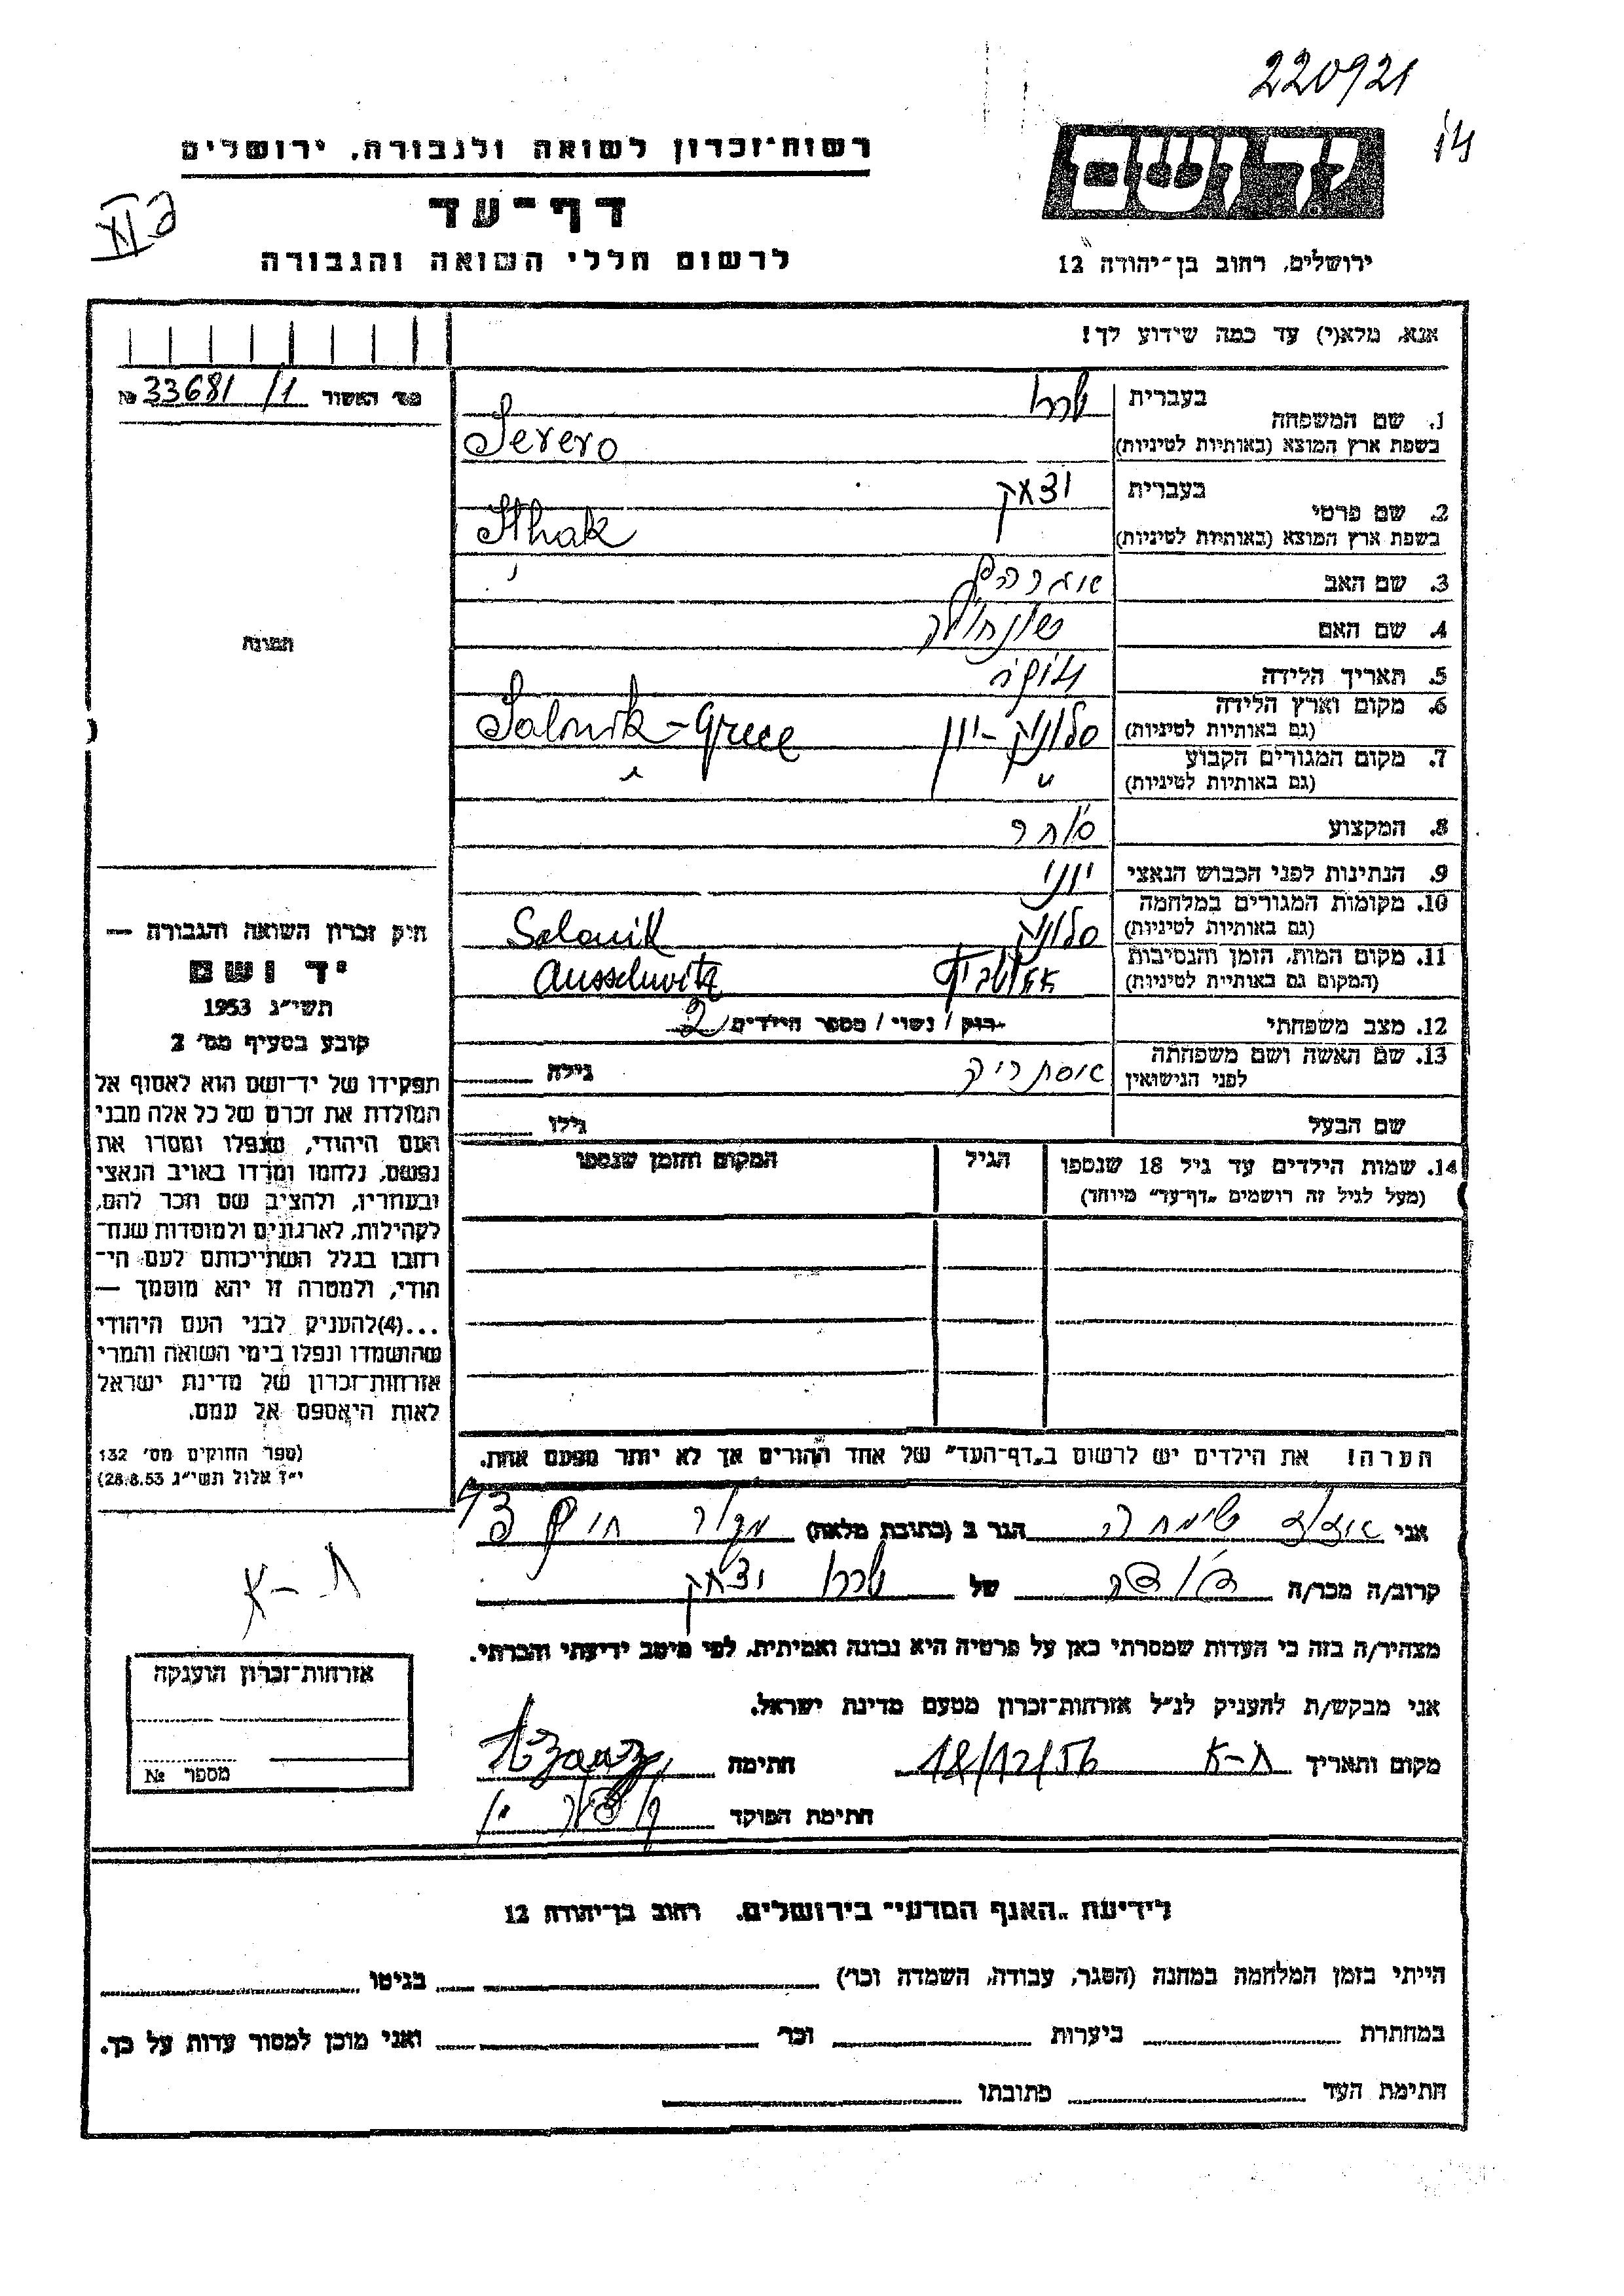 220921
14
ידושם
רשות־זכרון לשואה ולגבורה, ירושלים
דף־עד
לרשום חללי השואה והגבורה
ירושלים, רחוב בן־יהודה 12
אנא, מלא(י) עד כמה שידוע לך!
מס' האשור № 33681/1
תמונה
1. שם המשפחה
בעברית
בשפת ארץ המוצא (באותיות לטיניות) Serero
2. שם פרטי
בעברית יצחק
בשפת ארץ המוצא (באותיות לטיניות) Ithak
3. שם האב אברהם
4. שם האם
5. תאריך הלידה
6. מקום וארץ הלידה
(גם באותיות לטיניות) סלוניק - יון Salonik - Grece
7. מקום המגורים הקבוע
(גם באותיות לטיניות) "
8. המקצוע סוחר
9. הנתינות לפני הכבוש הנאצי יוני
10. מקומות המגורים במלחמה
(גם באותיות לטיניות) סלוניק Salonik
11. מקום המות, הזמן והנסיבות
(המקום גם באותיות לטיניות) Ausschwitz
12. מצב משפחתי רוק / נשוי / מספר הילדים 2
13. שם האשה ושם משפחתה
לפני הנישואין גילה
שם הבעל גילו
14. שמות הילדים עד גיל 18 שנספו
(מעל לגיל זה רושמים „דף־עד" מיוחד)
הגיל
המקום והזמן שנספו
הערה! את הילדים יש לרשום ב„דף־העד" של אחד ההורים אך לא יותר מפעם אחת.
חיק זכרון השואה והגבורה —
יד ושם
תשי"ג 1953
קובע בסעיף מס' 2
תפקידו של יד־ושם הוא לאסוף אל
המולדת את זכרם של כל אלה מבני
העם היהודי, שנפלו ומסרו את
נפשם, נלחמו ומרדו באויב הנאצי
ובעוזריו, ולהציב שם וזכר להם,
לקהילות, לארגונים ולמוסדות שנח־
רבו בגלל השתייכותם לעם הי־
הודי, ולמטרה זו יהא מוסמך —
...(4)להעניק לבני העם היהודי
שהושמדו ונפלו בימי השואה והמרי
אזרחות־זכרון של מדינת ישראל
לאות היאספם אל עמם.
(ספר החוקים מס' 132
י"ז אלול תשי"ג 28.8.53)
אני שימחה הגר ב (כתובת מלאה)
קרוב/ה מכר/ה דודה של יצחק
מצהיר/ה בזה כי העדות שמסרתי כאן על פרטיה היא נכונה ואמיתית, לפי מיטב ידיעתי והכרתי.
אני מבקש/ת להעניק לנ"ל אזרחות־זכרון מטעם מדינת ישראל.
מקום ותאריך ת-א 18/12/56 חתימה
חתימת הפוקד
ת-א
אזרחות־זכרון הוענקה
מספר №
לידיעת „האגף המדעי" בירושלים, רחוב בן־יהודה 12
הייתי בזמן המלחמה במחנה (הסגר, עבודה, השמדה וכו') בגיטו
במחתרת ביערות וכו' ואני מוכן למסור עדות על כך.
חתימת העד כתובתו